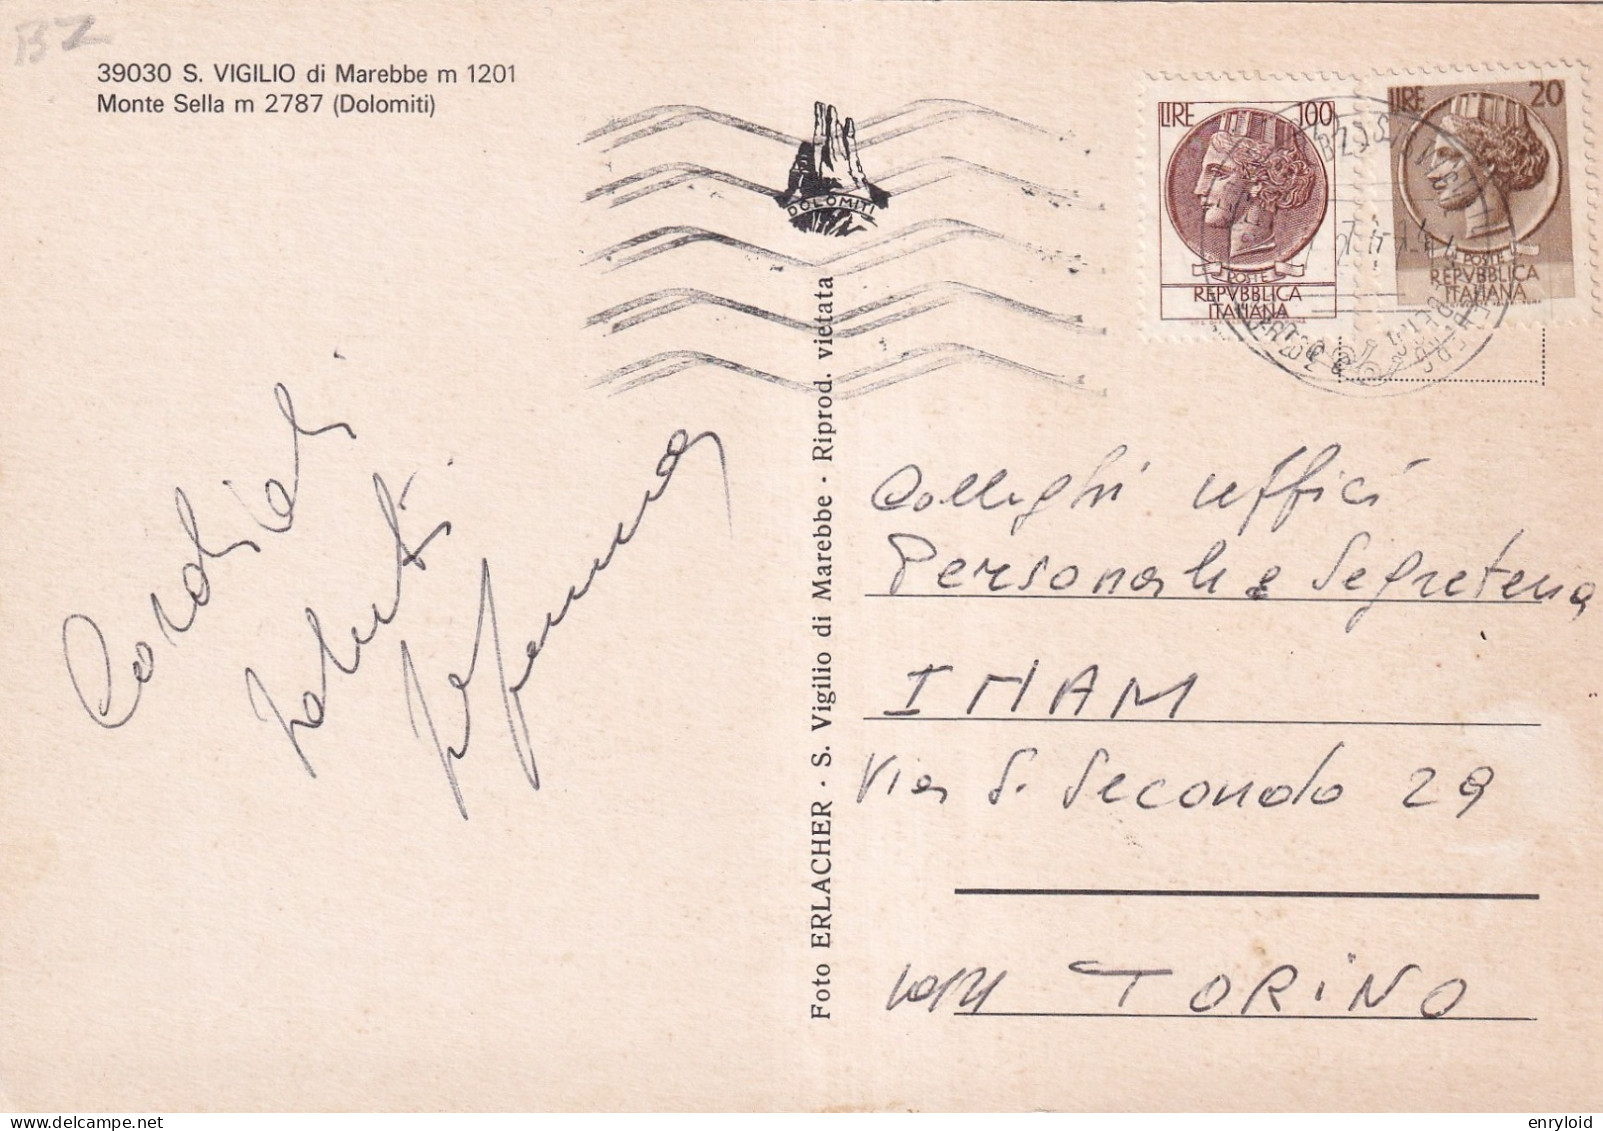 BZ
39030 S. VIGILIO di Marebbe m 1201
Monte Sella m 2787 (Dolomiti)
DOLOMITI
LIRE 100
POSTE
REPVBBLICA
ITALIANA
LIRE 20
POSTE
REPVBBLICA
ITALIANA
Cordiali
saluti
Foto ERLACHER · S. Vigilio di Marebbe · Riprod. vietata
Colleghi uffici
Personale e Segreteria
INAM
Via S. Secondo 29
TORINO
enryloid @ delcampe.net